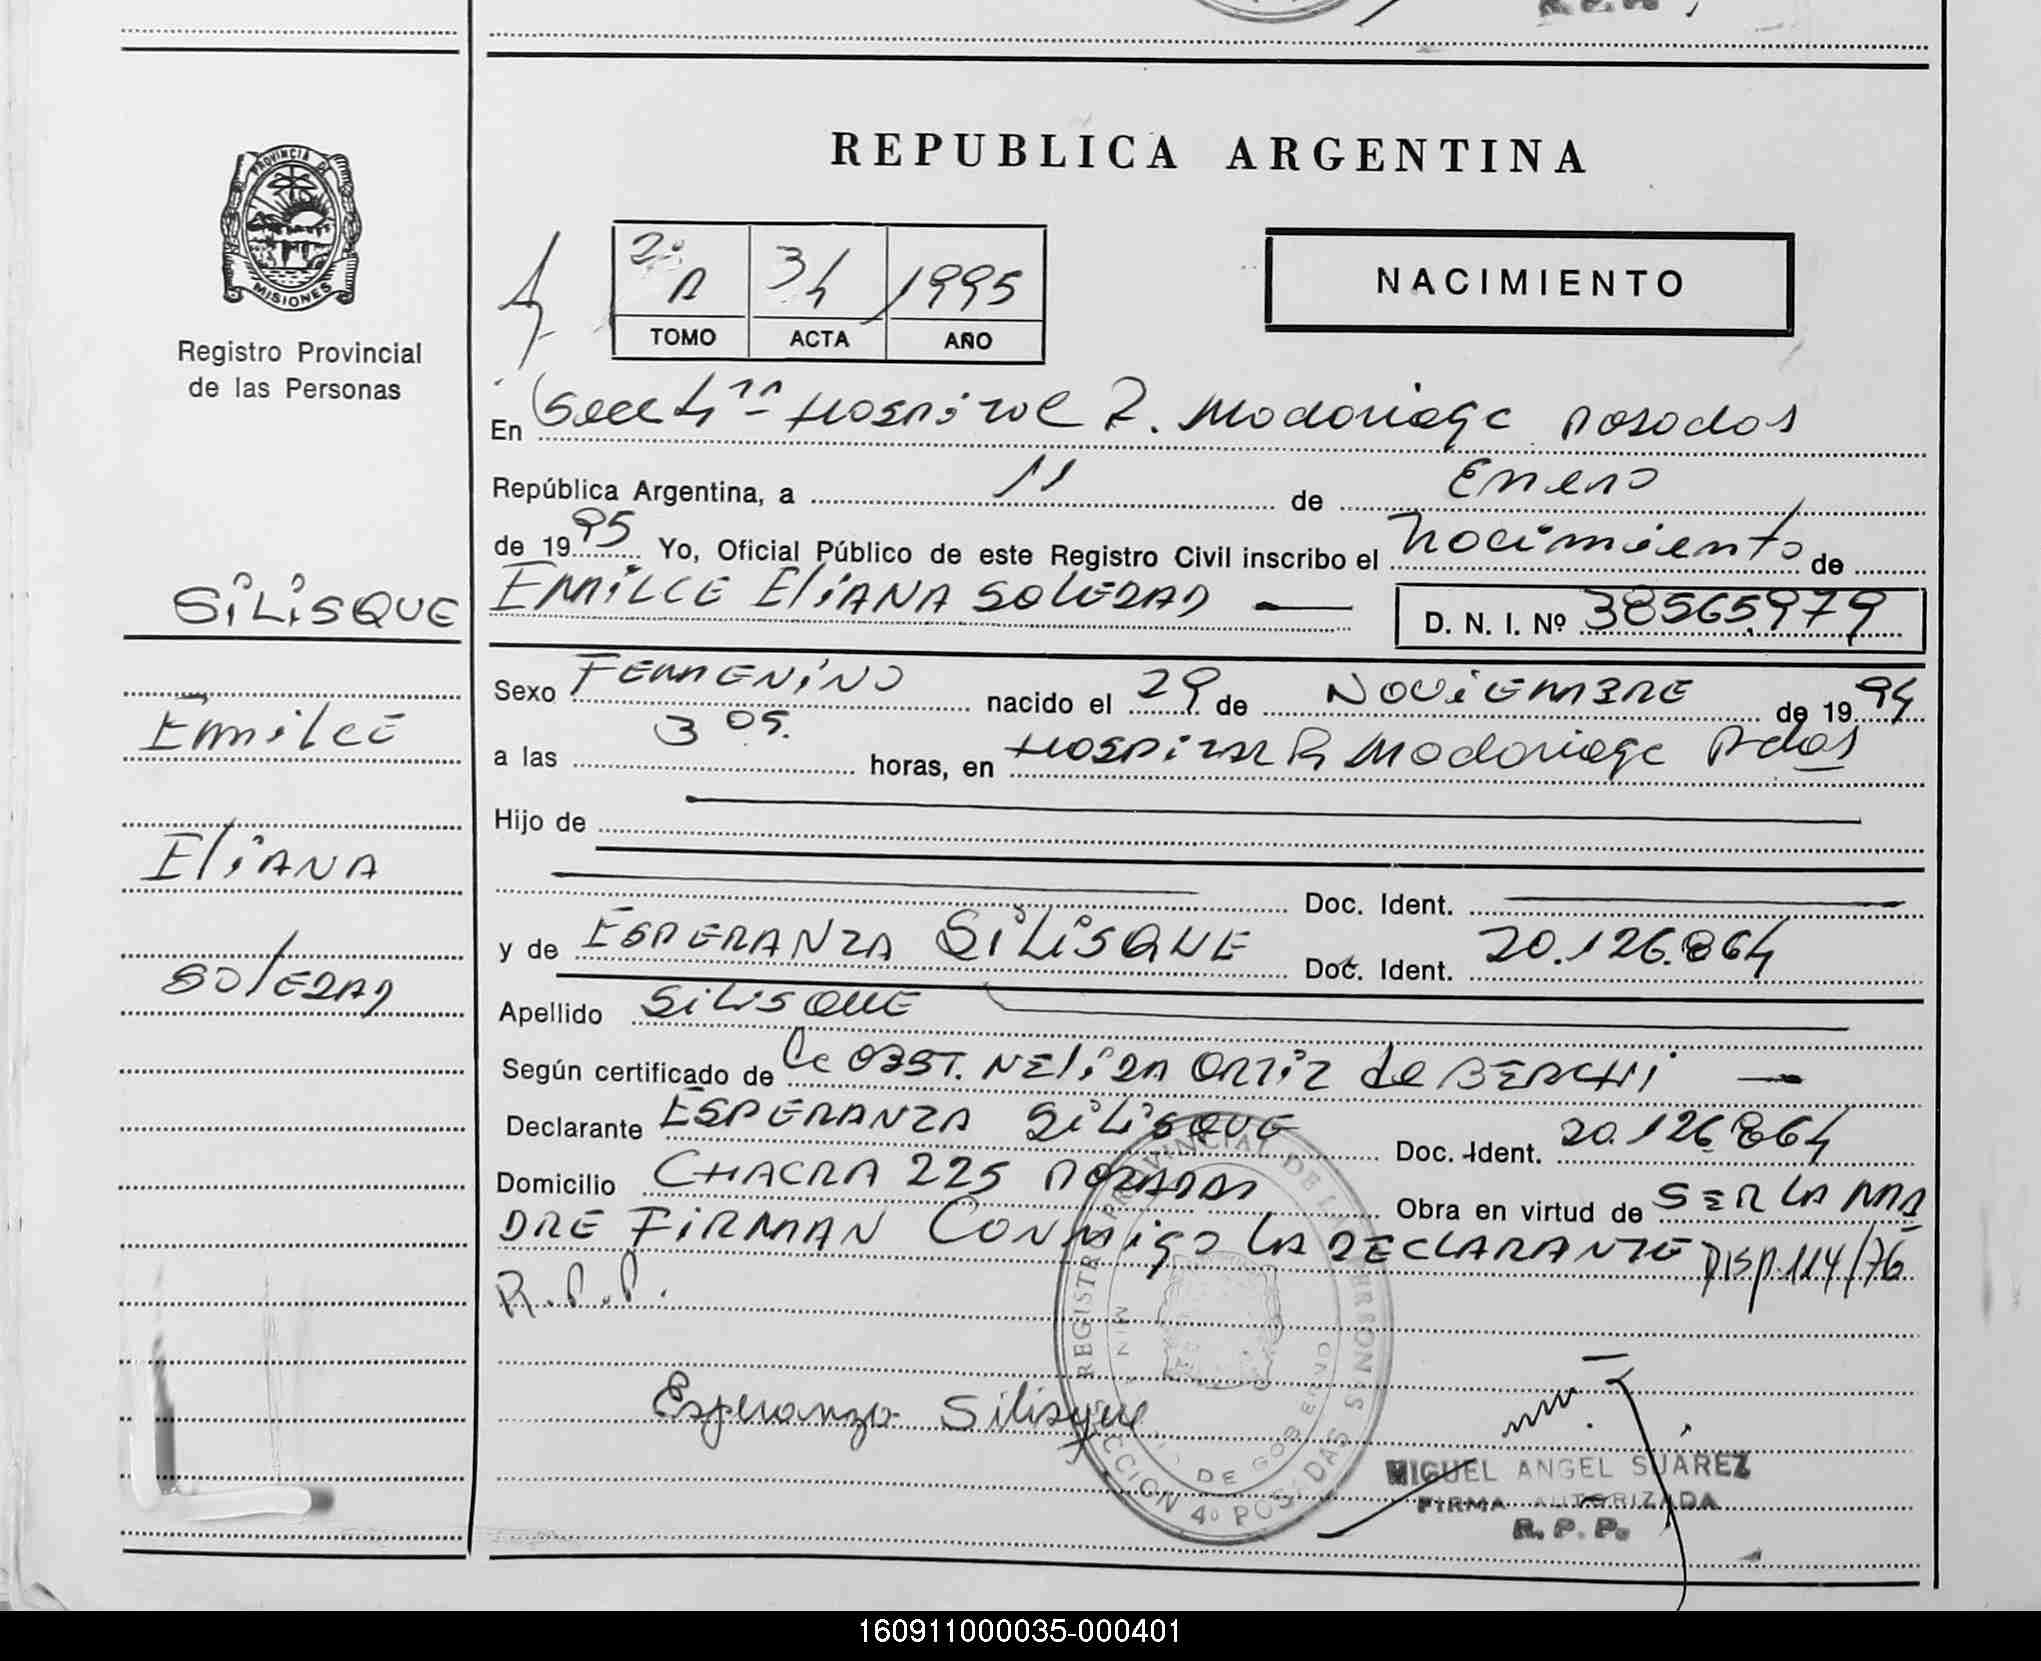 R. P. P.
PROVINCIA DE
MISIONES
Registro Provincial
de las Personas
SILISQUE
Emilce
Eliana
SOLEDAD
REPUBLICA ARGENTINA
2º A 34 1995
TOMO ACTA AÑO
NACIMIENTO
En Secc 4ª Hospital R. Madariaga Posadas
República Argentina, a 11 de Enero
de 1995 Yo, Oficial Público de este Registro Civil inscribo el Nacimiento de
EMILCE ELIANA SOLEDAD — D. N. I. Nº 38565979
Sexo FEMENINO nacido el 29 de NOVIEMBRE de 1994
a las 3 05. horas, en HOSPITAL R Madariaga Pdas
Hijo de
Doc. Ident.
y de ESPERANZA SILISQUE Doc. Ident. 20.126.864
Apellido SILISQUE
Según certificado de la OBST. NELIDA ORTIZ de BERCHI —
Declarante ESPERANZA SILISQUE Doc. Ident. 20.126.864
Domicilio CHACRA 225 POSADAS Obra en virtud de SER LA MA
DRE FIRMAN CONMIGO LA DECLARANTE DISP. 114/76
R.P.P.
Esperanza Silisque
REGISTRO PROVINCIAL DE LAS PERSONAS
SECCION 4º POSADAS
DE GOBIERNO
MIGUEL ANGEL SUAREZ
FIRMA AUTORIZADA
R. P. P.
160911000035-000401